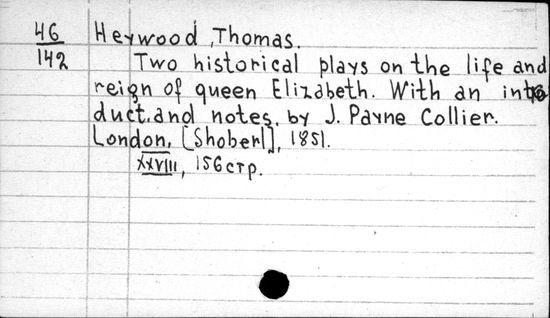 46 Heywood, Thomas.
142 Two historical plays on the life and
reign of queen Elizabeth. With an intro
duct. and notes, by J. Payne Collier.
London, [Shoberl], 1851.
XXVIII, 156 стр.